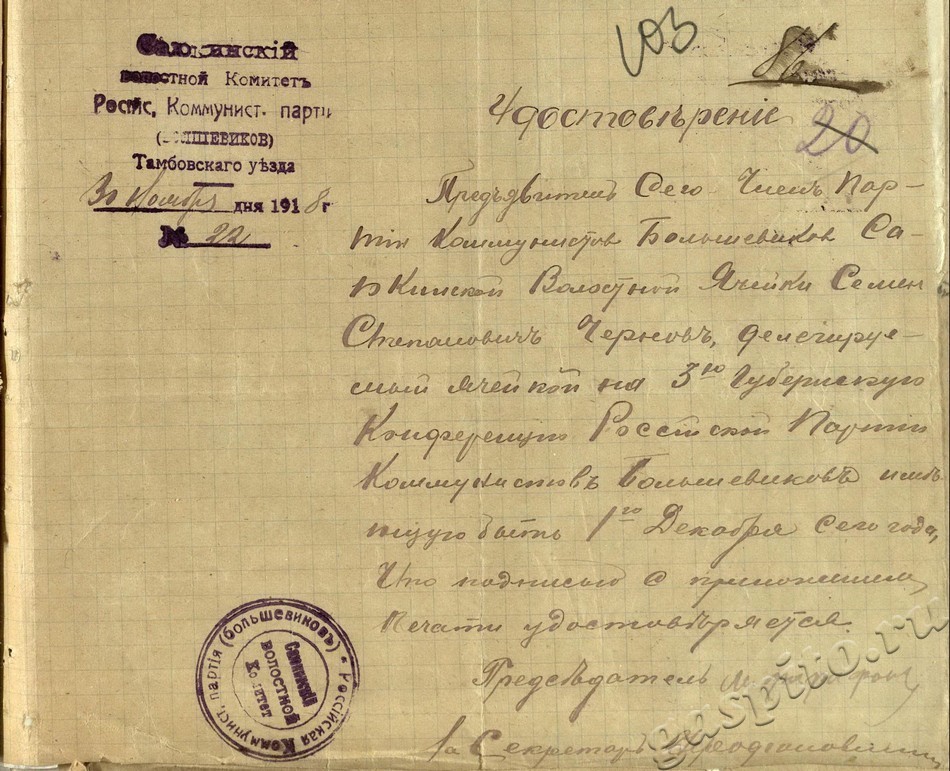 волостной Комитетъ
Россійс. Коммунист. партіи
(БОЛЬШЕВИКОВ)
Тамбовскаго уѣзда
30 Ноября дня 1918 г
№ 22
103
86
20
Удостовѣреніе
Предъдвитель Сего Членъ Пар-
тіи Коммунистов Большевиков Са-
Волостной Ячейки Семен
Степановичъ Черновъ, делегируе-
мый ячейкой на 3ью Губернскую
Конференцию Россійской Партіи
Коммунистовъ Большевиковъ имѣ-
ющую быть 1го Декабря сего года,
Что подписью с приложением
Печати удостовѣряется.
Предсѣдатель
Секретарь
Россійская Коммунист. партія (большевиковъ)
волостной
Комитет
gaspito.ru